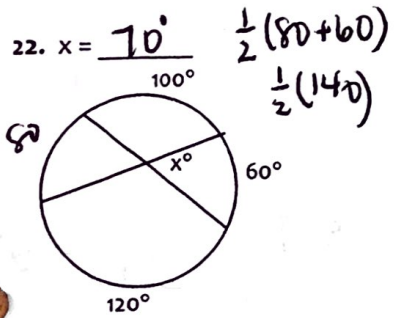 22. x = 70°
½(80+60)
½(140)
100°
80
x°
60°
120°